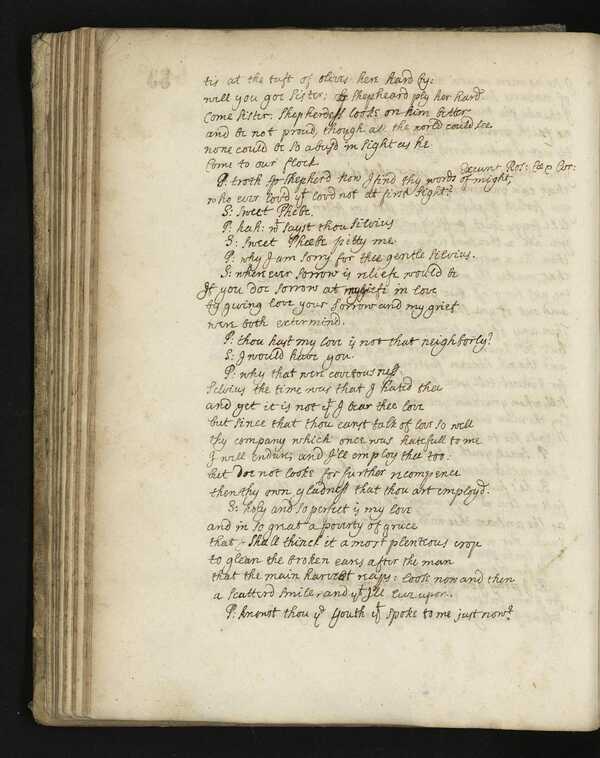 tis at the tuft of olives here hard by:
will you goe Sister: Shepheard ply her hard.
Come Sister: Shepherdess looke on him better
and be not proud, though all the world could see
none could be so abusd in sight as he
Come to our flock
Exeunt Ros: Cor:
P: troth Shepherd now I find thy words of might,
who ever lov'd yt lov'd not at first sight?
S: Sweet Phebe.
P: hah: wt sayst thou Silvius
S: Sweet Phoebe pitty me
P: why I am sorry for thee gentle Silvius.
S: where ever sorrow is reliefe would be
If you doe sorrow at my griefe in love
by giving love your sorrow and my grief
were both extermind.
P: thou hast my love is not that neighborly?
S: I would have you.
P: why that were covetousness
Selvius the time was that I hated thee
and yet it is not yt I bear thee love
but since that thou canst talk of love so well
thy company which once was hatefull to me
I will endure; and I'll employ thee too:
but doe not looke for further recompence
then thy own gladness that thou art employd.
S: holy and so perfect is my love
and in so great a poverty of grace
that I shall think it a most plenteous crop
to glean the broken ears after the man
that the main harvest reaps: loose now and then
a scatterd smile and yt I'll live upon.
P: knowst thou ye youth yt spoke to me just now?